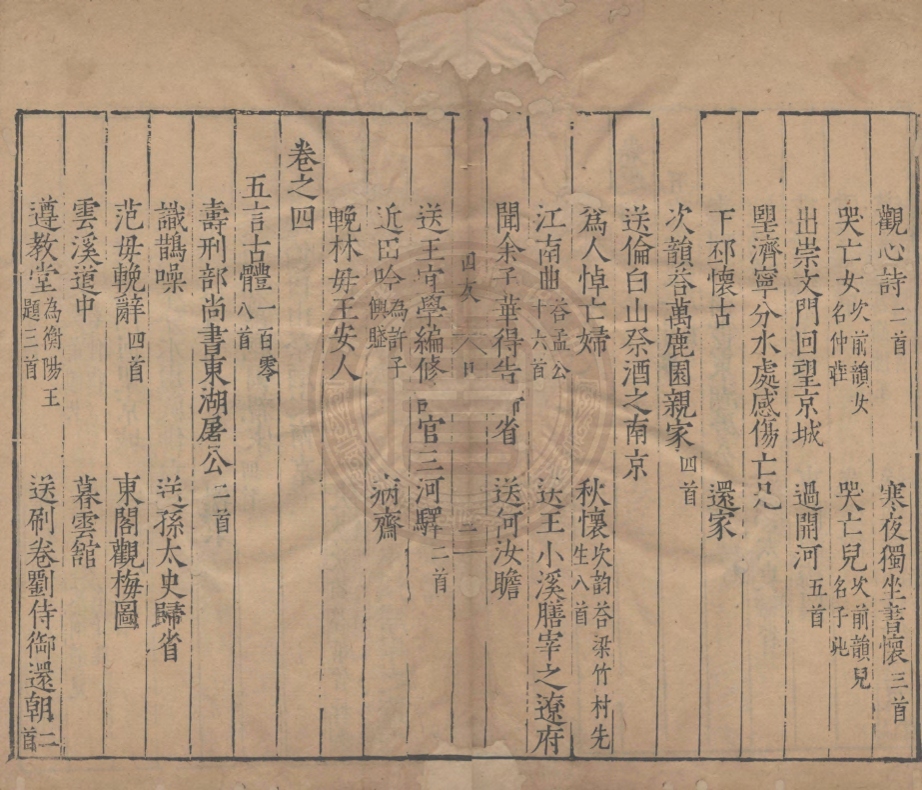 觀心詩二首 寒夜獨坐書懷三首
哭亡女次前韻女名仲莊 哭亡兒次前韻兒名子
出崇文門回望京城 過開河五首
望濟寧分水處感傷亡兄
下邳懷古 還家
次韻荅萬鹿園親家四首
送倫白山祭酒之南京
爲人悼亡婦 秋懷次韵荅梁竹村先生八首
江南曲荅孟公十六首 送王小溪膳宰之遼府
聞余子華得告省 送何汝瞻
目 二
送王宜學編修官三河驛二首
近臣吟為許子賦 病齋
輓林母王安人
卷之四
五言古體一百零八首
壽刑部尚書東湖屠公二首
識鵲噪 送孫太史歸省
范母輓辭四首 東閣觀梅圖
雲溪道中 暮雲舘
遵教堂為衡陽王題三首 送刷卷劉侍御還朝二首